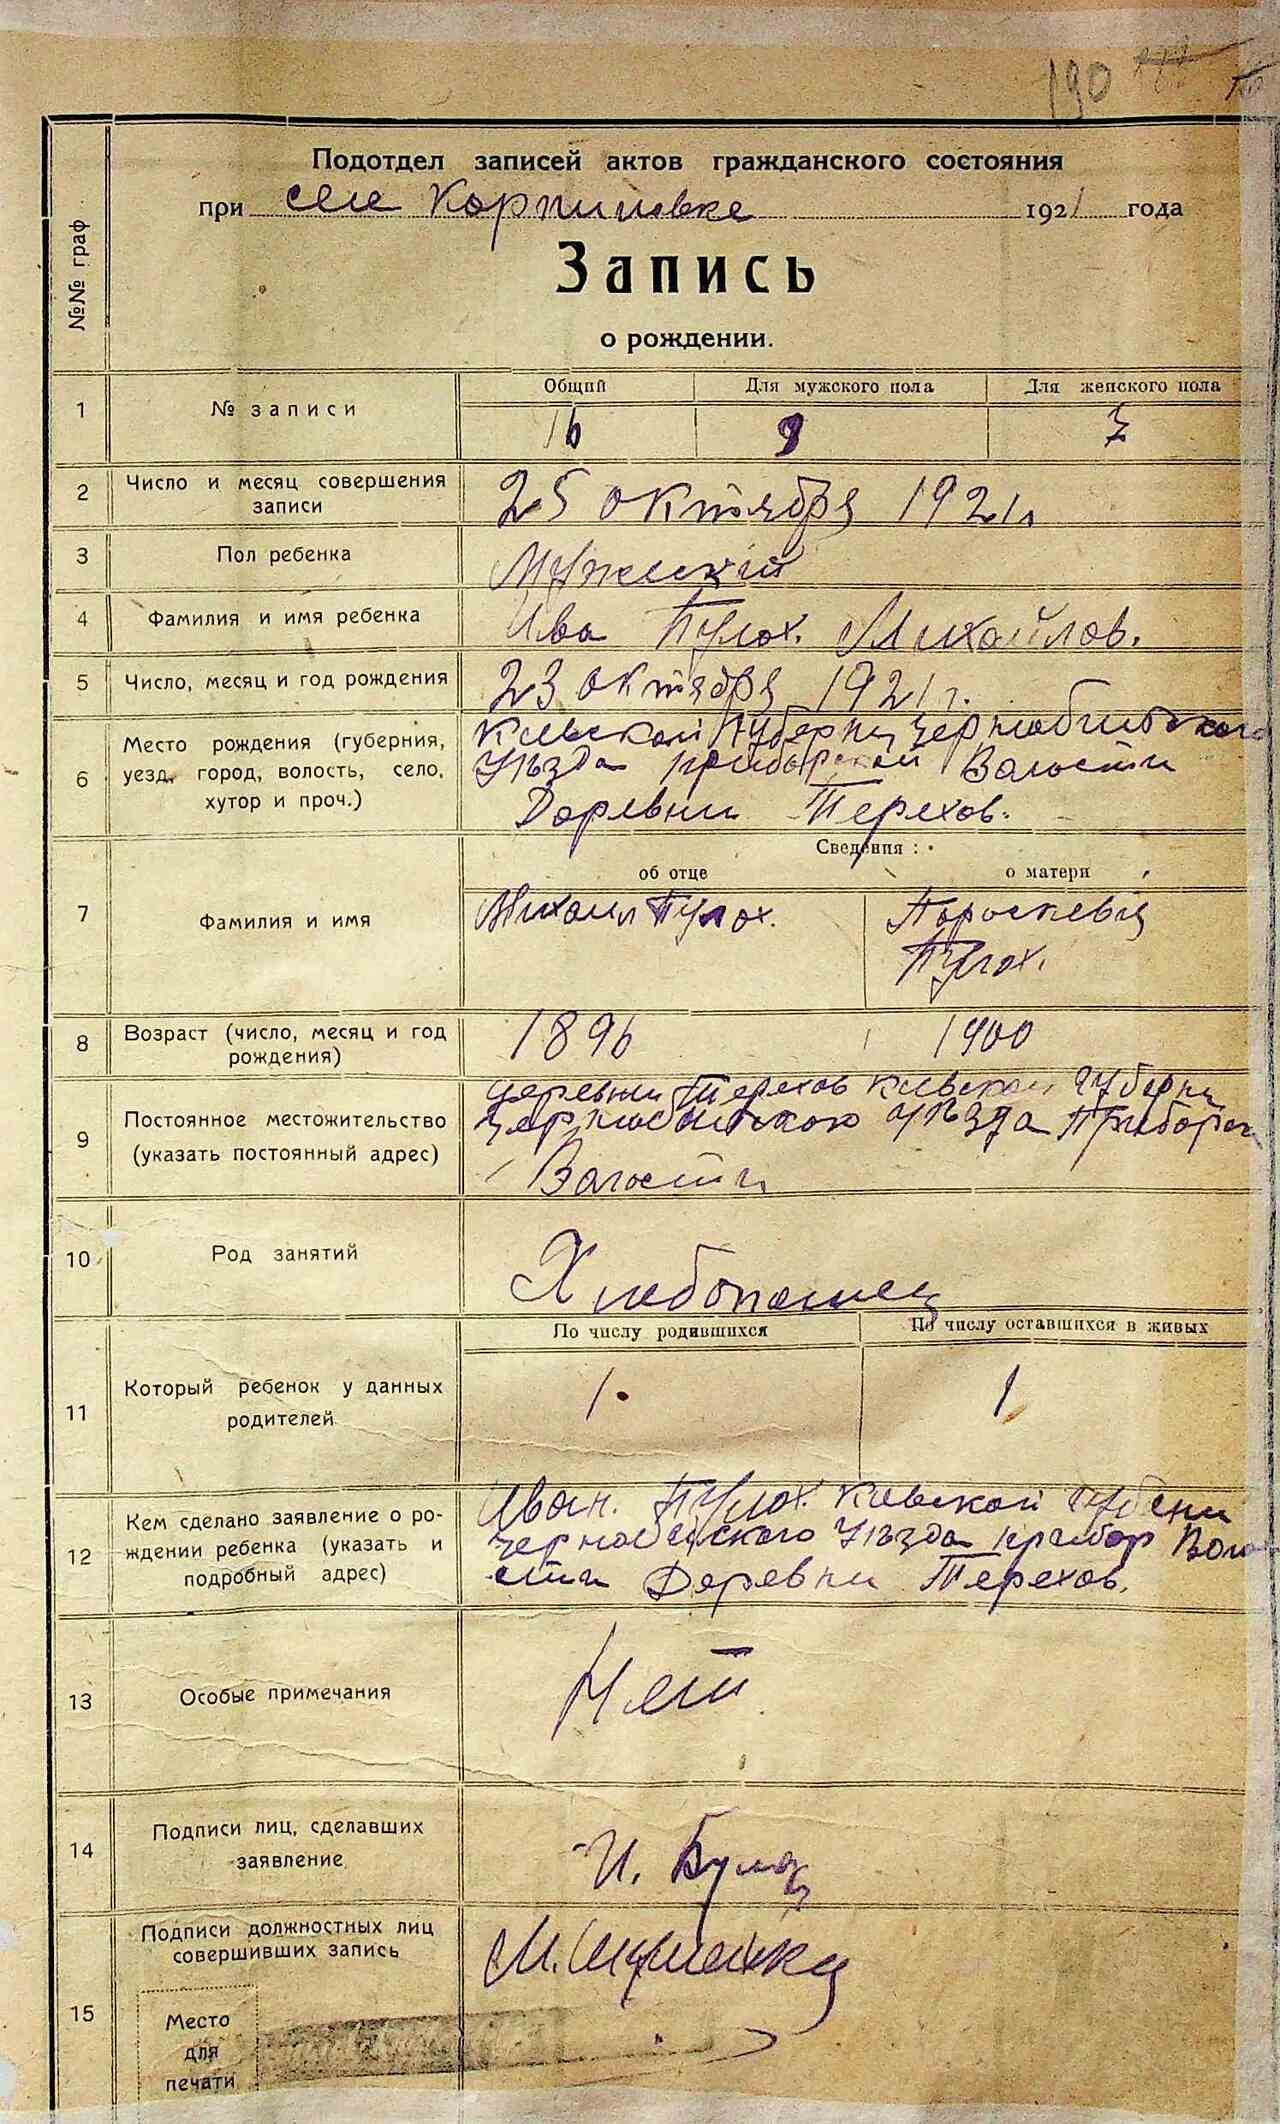 190
Подотдел записей актов гражданского состояния
при селе Корпиловке 1921 года
№№ граф
Запись
о рождении.
1 № записи
Общий Для мужского пола Для женского пола
16 9 7
2 Число и месяц совершения записи
25 октября 1921 г
3 Пол ребенка
Мужский
4 Фамилия и имя ребенка
Ива Булох. Михайлов.
5 Число, месяц и год рождения
23 октября 1921 г.
6 Место рождения (губерния,
уезд, город, волость, село,
хутор и проч.)
Киевской Губерни Чернобильского
Уъзда прыборской Волости
Деревни Терехов.
Сведения:
об отце о матери
7 Фамилия и имя
Михаил Булох.
Пороскевія
Булох.
8 Возраст (число, месяц и год
рождения)
1896 1900
9 Постоянное местожительство
(указать постоянный адрес)
деревни Терехов Киевской Губерни
Чернобильского уъзда Приборск
Волости
10 Род занятий
Хлебопашец
11 Который ребенок у данных
родителей
По числу родившихся По числу оставшихся в живых
1. 1
12 Кем сделано заявление о ро-
ждении ребенка (указать и
подробный адрес)
Иван. Булох. Киевской губерни
Уъзда прибор Воло
сти Деревни Терехов.
13 Особые примечания
Нет
14 Подписи лиц, сделавших
заявление
И. Булах
15 Подписи должностных лиц
совершивших запись
М.
Место
для
печати